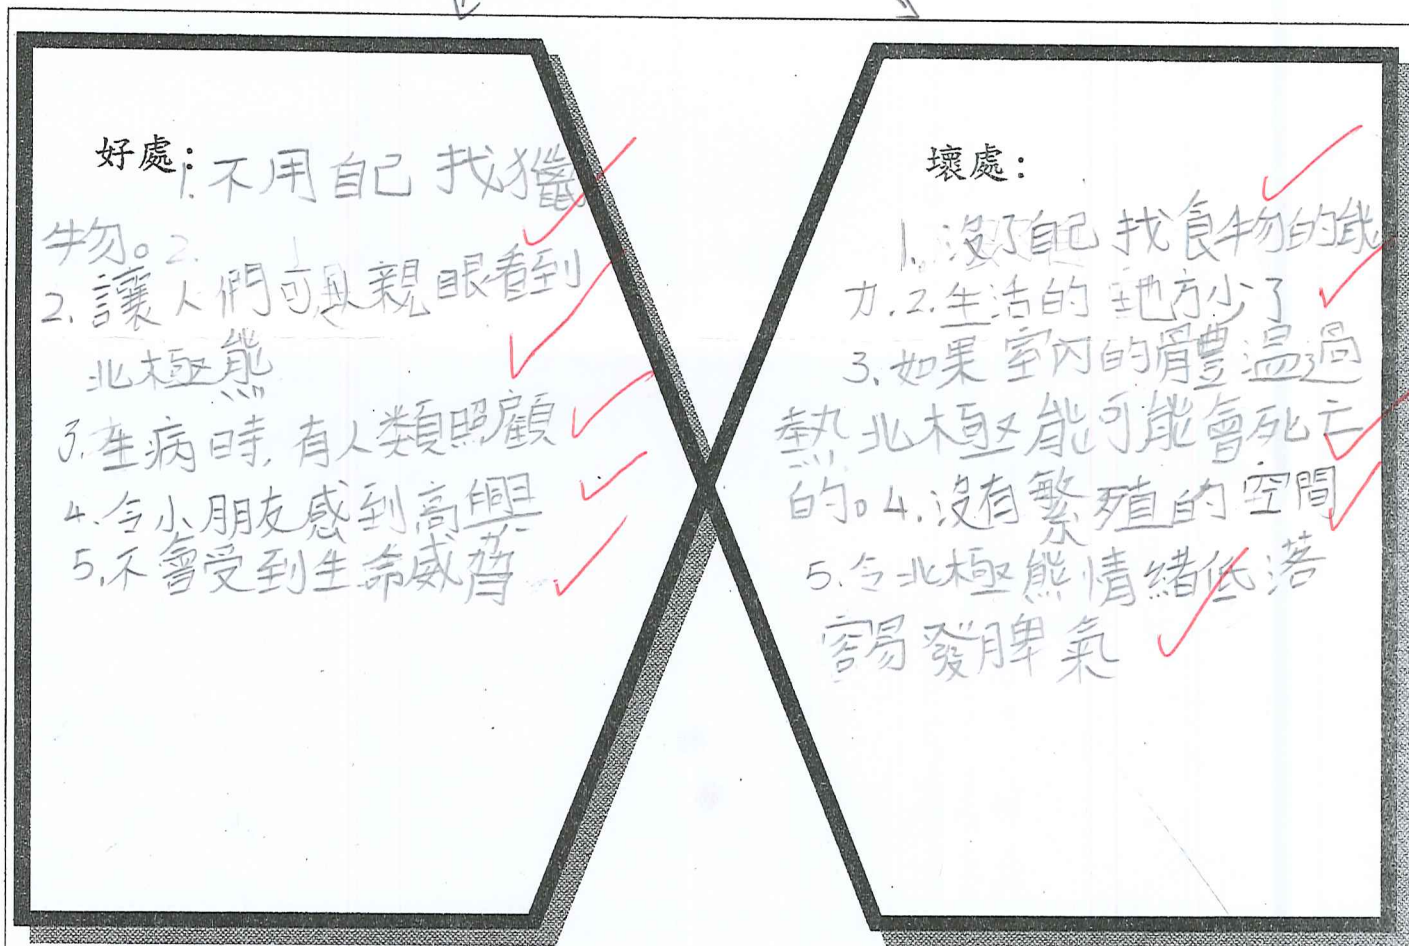 好處：
1. 不用自己找獵
物。2.
2. 讓人們可以親眼看到
北極熊
3. 生病時，有人類照顧
4. 令小朋友感到高興
5. 不會受到生命威脅
壞處：
1. 沒了自己找食物的能
力. 2. 生活的地方少了
3. 如果室內的體溫過
熱北極能可能會死亡
的。4. 沒有繁殖的空間
5. 令北極熊情緒低落
容易發脾氣